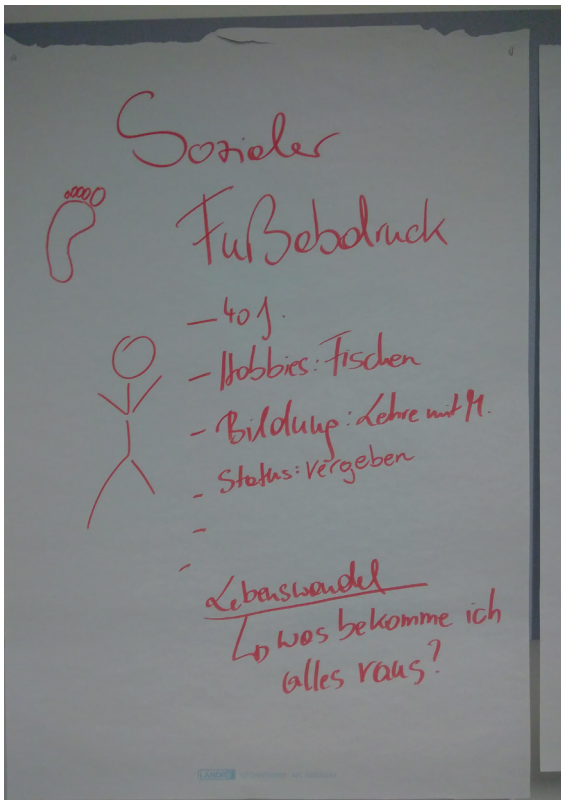 Sozialer
Fußebdruck
- 40 J.
- Hobbies: Fischen
- Bildung: Lehre mit M.
- Status: vergeben
-
-
Lebenswandel
↳ was bekomme ich
alles raus?
LANDRÉ